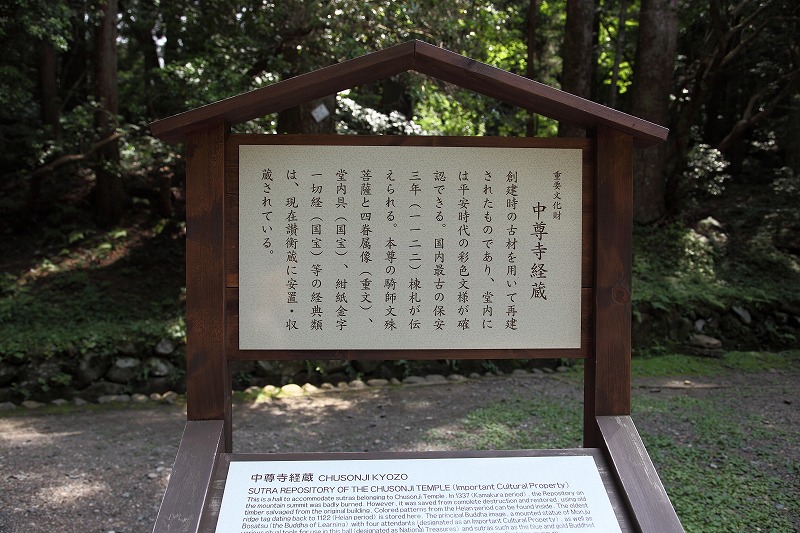 重要文化財
中尊寺経蔵
創建時の古材を用いて再建
されたものであり、堂内に
は平安時代の彩色文様が確
認できる。国内最古の保安
三年（一一二二）棟札が伝
えられる。本尊の騎師文殊
菩薩と四眷属像（重文）、
堂内具（国宝）、紺紙金字
一切経（国宝）等の経典類
は、現在讃衡蔵に安置・収
蔵されている。
中尊寺経蔵 CHUSONJI KYOZO
SUTRA REPOSITORY OF THE CHUSONJI TEMPLE (Important Cultural Property)
This is a hall to accommodate sutras belonging to Chusonji Temple. In 1337 (Kamakura period), the Repository on
the mountain summit was badly burned. However, it was saved from complete destruction and restored, using old
timber salvaged from the original building. Colored patterns from the Heian period can be found inside. The oldest
ridge tag dating back to 1122 (Heian period) is stored here. The principal Buddha image, a mounted statue of Monju
Bosatsu (the Buddha of Learning) with four attendants (designated as an Important Cultural Property), as well as
tools for use in this hall (designated as National Treasures) and sutras such as the blue and gold Buddhist